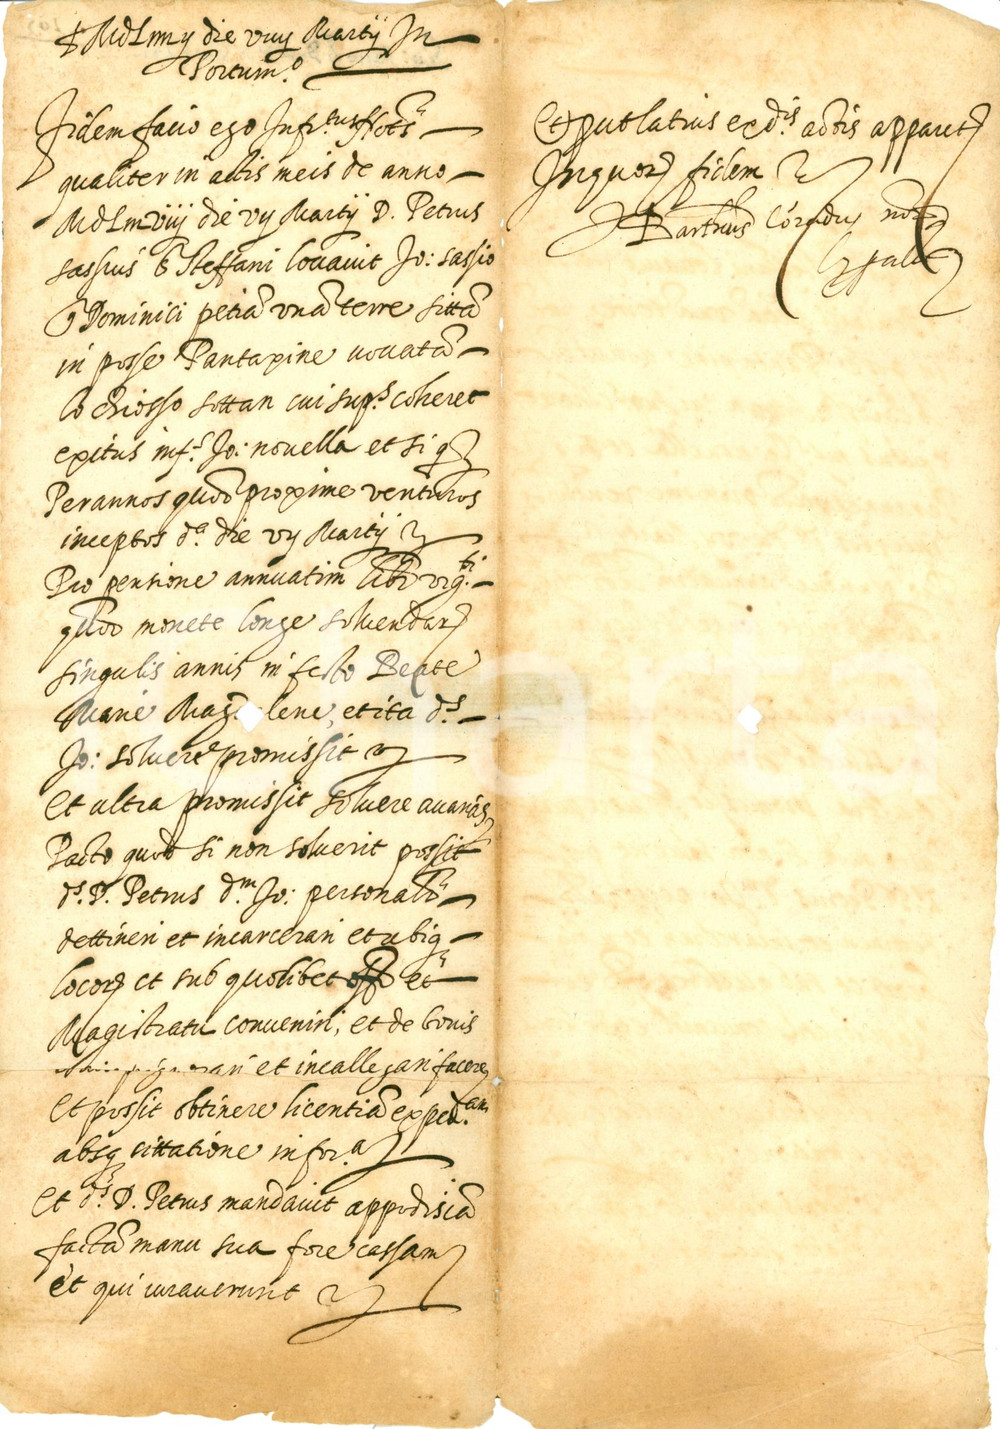 die Martÿ In
Portum.º
Fidem facio ego Infr.tus Not.s
qualiter in actis meis de anno
die vÿ Martÿ D. Petrus
sassius Steffani locavit Jo: sassio
Dominici petiā unā terre sittā
in posse Pantasine vocatā
lo chiosso sottan cui sup.s coheret
exitus inf.s Jo: novella et si q
Per annos quōr proxime venturos
inceptos d.a die vÿ Martÿ
Pro pensione annuatim vig.ti
quōr monete longe solvendar
singulis annis in festo Beate
Marie Magdalene, et ita d.s
Jo: solvere promissit
Et ultra promissit solvere avarias
Pacto quod si non solverit possit
d.s D. Petrus d.m Jo: personalr
dettineri et incarcerari et ubiq
locor et sub quolibet off et
Magistratu conveniri, et de bonis
et incallegari facere
Et possit obtinere licentiā exped.am
absq cittatione infor.a
Et d.s D. Petrus mandavit appodisiā
factā manu sua fore cassam
et qui iuraverunt
Et ut latius ex d.is actis apparet
In quor fidem
not